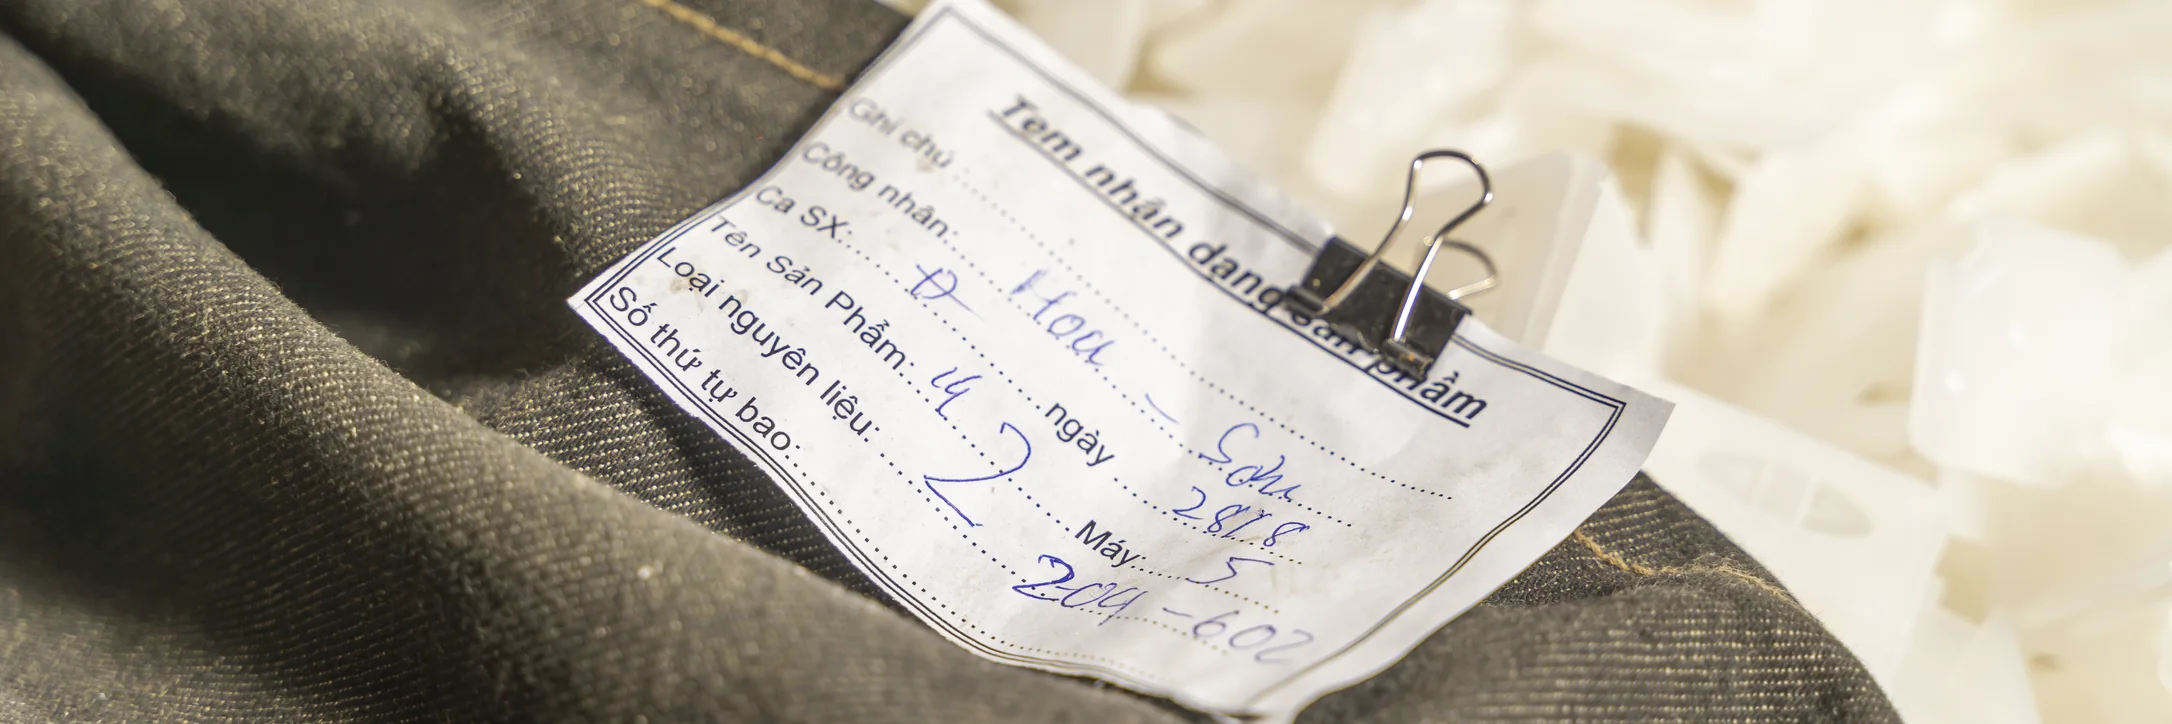 Tem nhận dạng sản phẩm
Ghi chú:
Công nhân: Hoa -
Ca SX: Đ ngày 28/8
Tên Sản Phẩm: 14 Máy: 5
Loại nguyên liệu: 2 204-602
Số thứ tự bao: